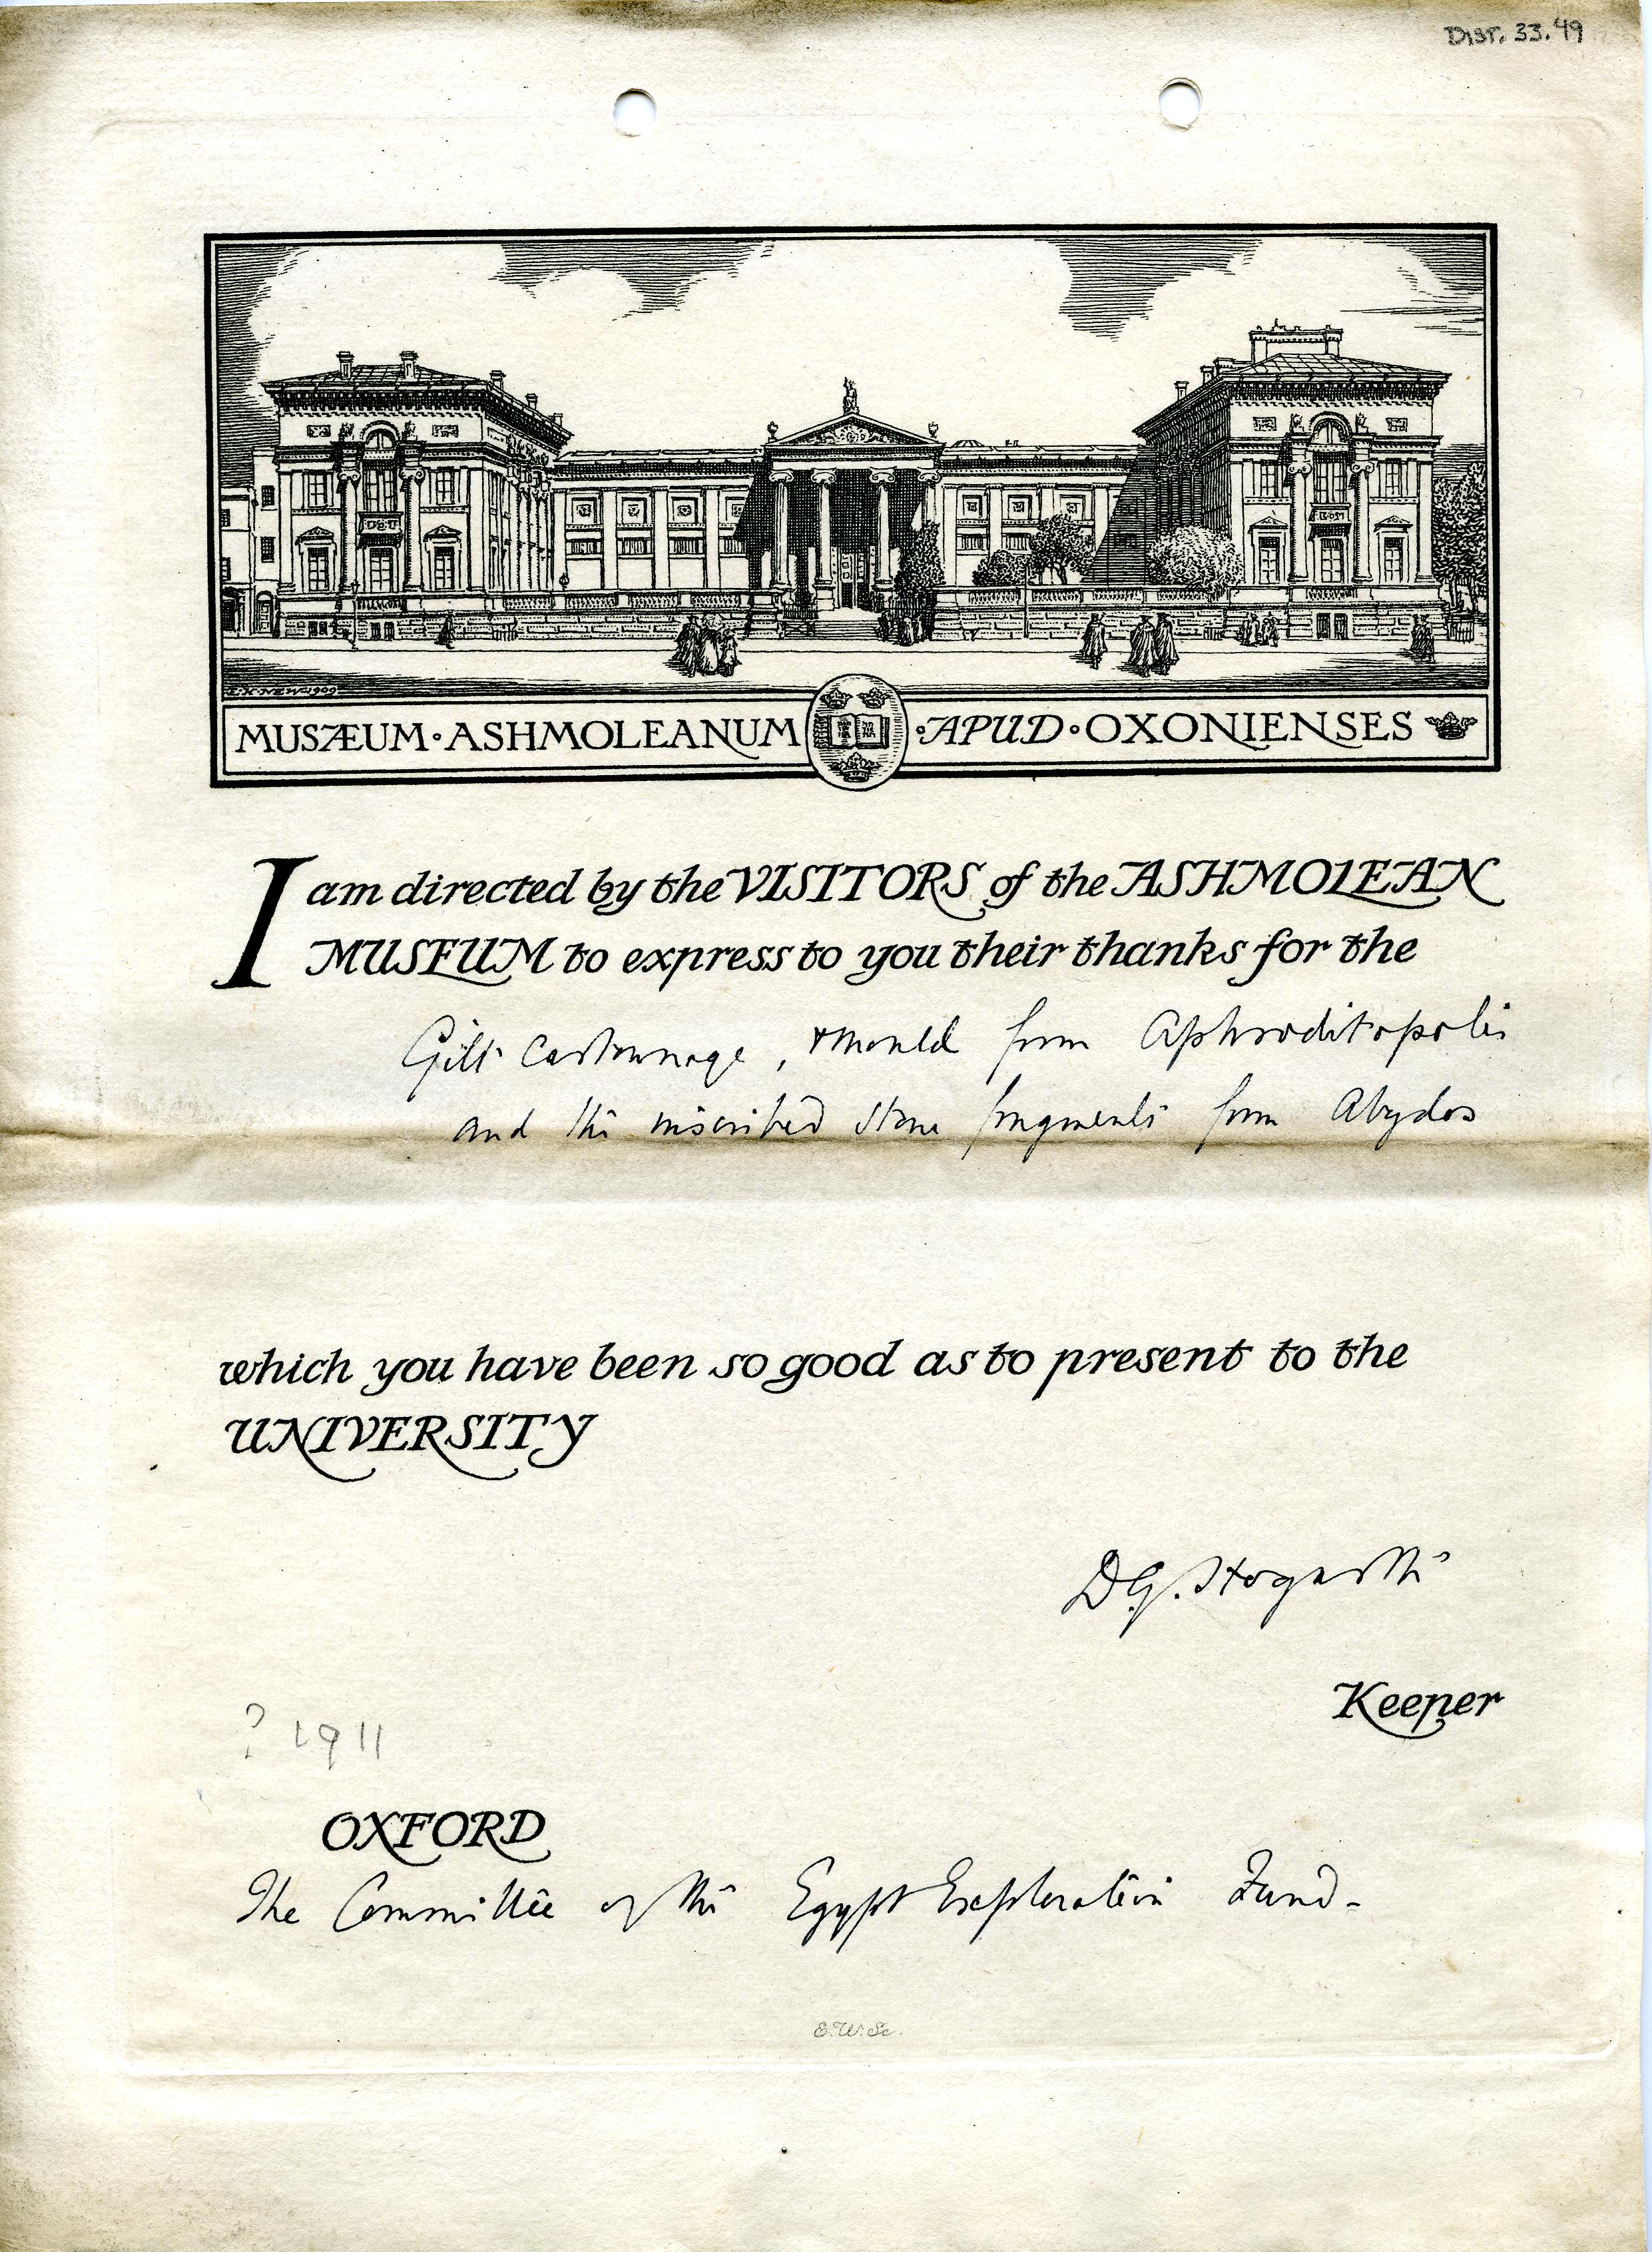 Dist. 33.49
E.H.NEW.1909
MUSÆUM·ASHMOLEANUM ·APUD·OXONIENSES
I am directed by the VISITORS of the ASHMOLEAN
MUSEUM to express to you their thanks for the
Gilt Cartonnage, & mould from Aphroditopolis
and the inscribed stone fragments from Abydos
which you have been so good as to present to the
UNIVERSITY
D.G. Hogarth
Keeper
? 1911
OXFORD
The Committee of the Egypt Exploration Fund-
E.W.Sc.